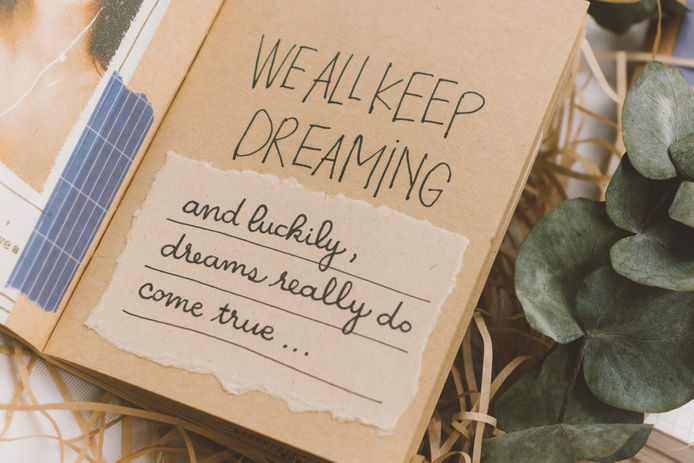 WE ALL KEEP
DREAMING
and luckily,
dreams really do
come true ...